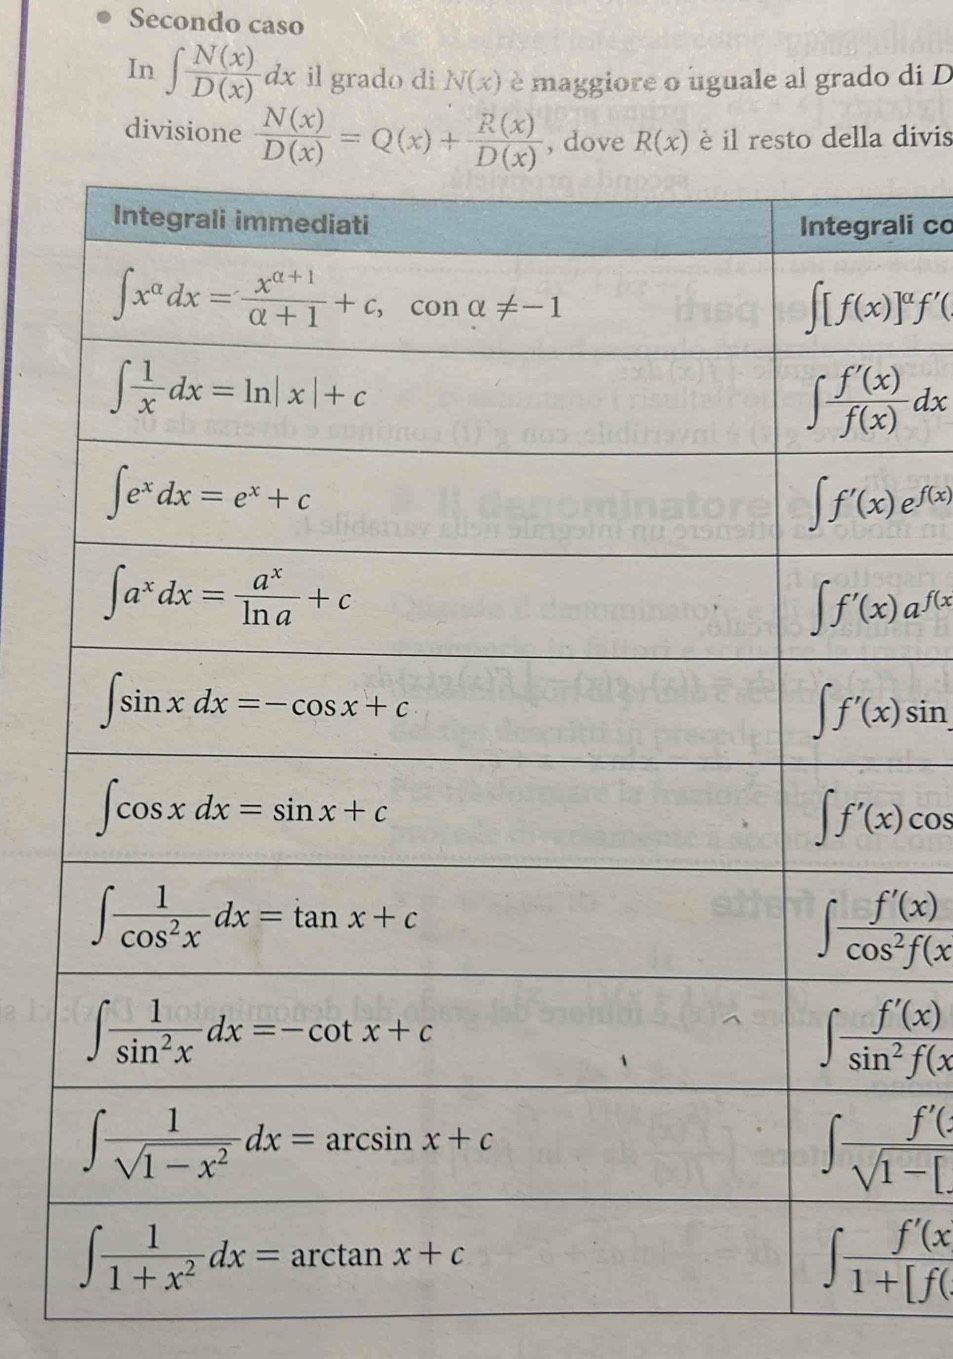 • Secondo caso
In ∫ N(x)/D(x) dx il grado di N(x) è maggiore o uguale al grado di D
divisione N(x)/D(x) = Q(x) + R(x)/D(x), dove R(x) è il resto della divis
Integrali immediati Integrali co
∫x^α dx = x^(α+1)/(α+1) + c, con α ≠ −1 ∫[f(x)]^α f′(
∫ 1/x dx = ln|x| + c ∫ f′(x)/f(x) dx
∫e^x dx = e^x + c ∫f′(x) e^f(x)
∫a^x dx = a^x/ln a + c ∫f′(x) a^f(x
∫sin x dx = −cos x + c ∫f′(x) sin
∫cos x dx = sin x + c ∫f′(x) cos
∫ 1/cos²x dx = tan x + c ∫ f′(x)/cos² f(x
∫ 1/sin²x dx = −cot x + c ∫ f′(x)/sin² f(x
∫ 1/√(1 − x²) dx = arcsin x + c ∫ f′(/√1 − [
∫ 1/(1 + x²) dx = arctan x + c ∫ f′(x/1 + [f(